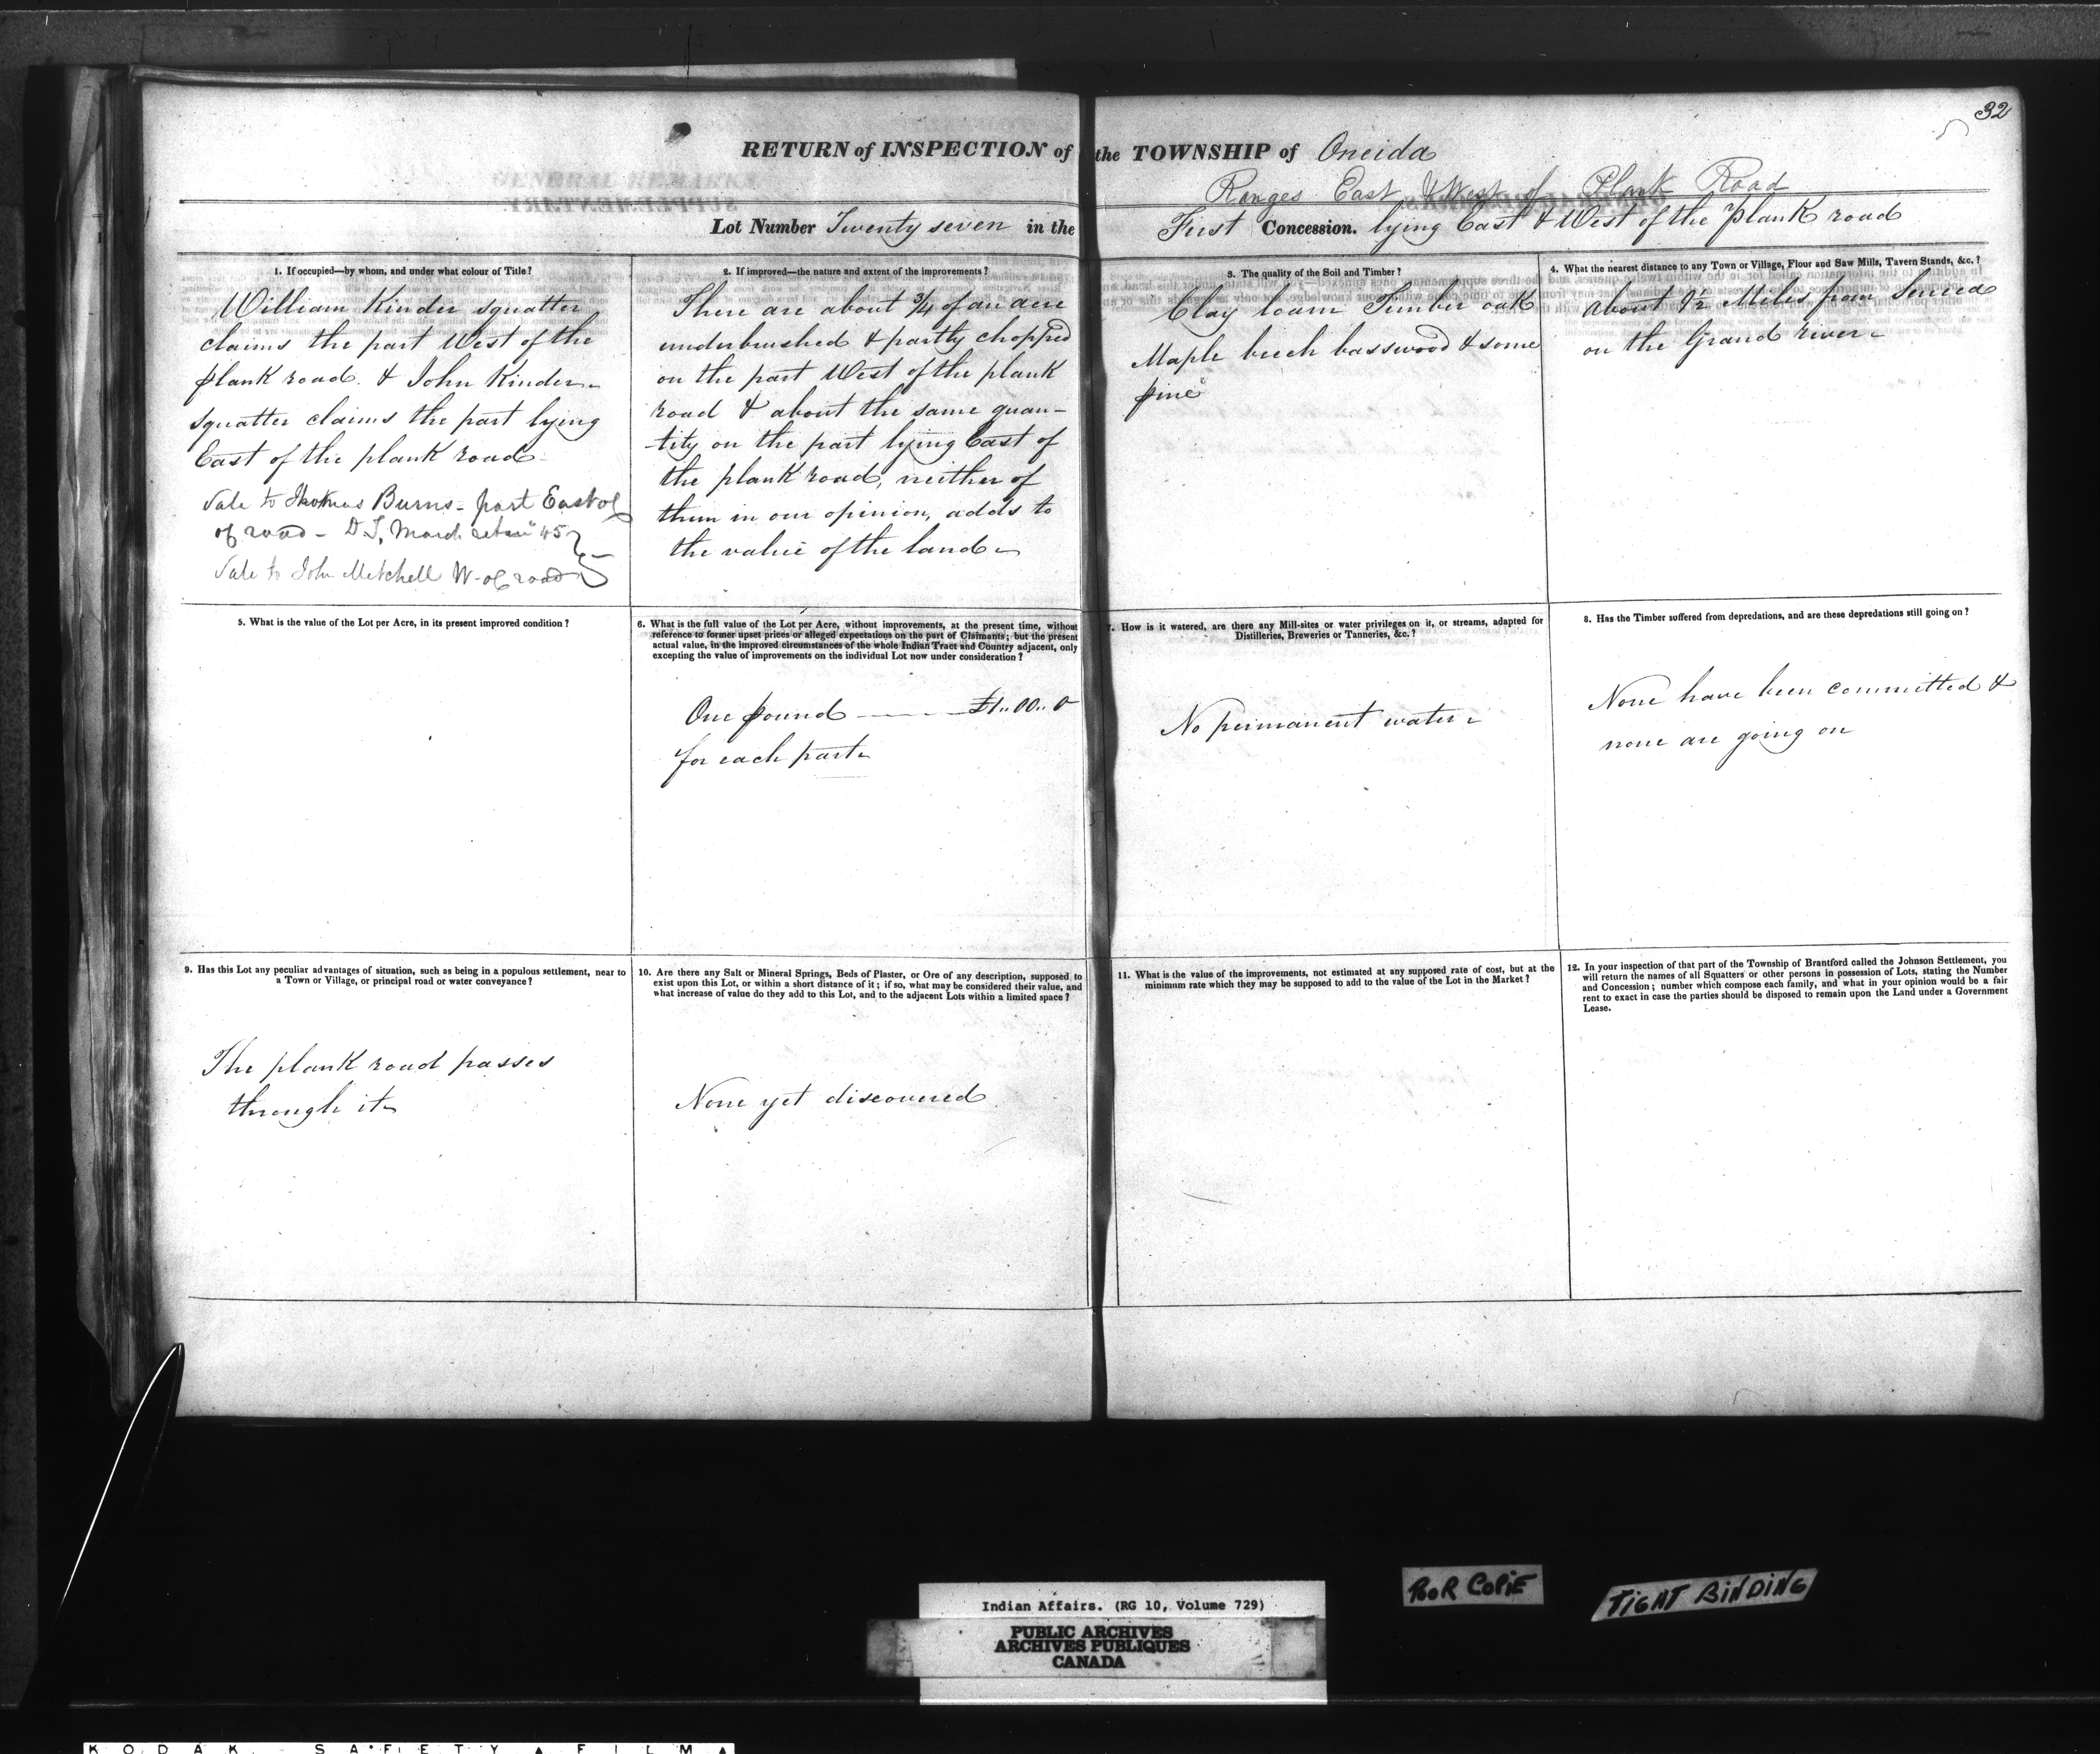 32
RETURN of INSPECTION of the TOWNSHIP of Oneida
Ranges East & West of Plank Road
Lot Number Twenty seven in the First Concession. lying East & West of the Plank road
1. If occupied—by whom, and under what colour of Title?
William Kinder squatter
claims the part West of the
plank road. & John Kinder
squatter claims the part lying
East of the plank road
Sale to Thomas Burns - part East of
of road - D T, March 45
Sale to John Mitchell W. of road
2. If improved—the nature and extent of the improvements?
There are about 3/4 of an acre
underbrushed & partly chopped
on the part West of the plank
road & about the same quan-
-tity on the part lying East of
the plank road, neither of
them in our opinion, adds to
the value of the land
3. The quality of the Soil and Timber?
Clay loam Timber oak
Maple beech basswood & some
pine
4. What the nearest distance to any Town or Village, Flour and Saw Mills, Tavern Stands, &c.?
About Miles from Seneca
on the Grand river
5. What is the value of the Lot per Acre, in its present improved condition?
6. What is the full value of the Lot per Acre, without improvements, at the present time, without
reference to former upset prices or alleged expectations on the part of Claimants; but the present
actual value, in the improved circumstances of the whole Indian Tract and Country adjacent, only
excepting the value of improvements on the individual Lot now under consideration?
One pound — £1..00..0
for each part
7. How is it watered, are there any Mill-sites or water privileges on it, or streams, adapted for
Distilleries, Breweries or Tanneries, &c.?
No permanent water
8. Has the Timber suffered from depredations, and are these depredations still going on?
None have been committed &
none are going on
9. Has this Lot any peculiar advantages of situation, such as being in a populous settlement, near to
a Town or Village, or principal road or water conveyance?
The plank road passes
through it
10. Are there any Salt or Mineral Springs, Beds of Plaster, or Ore of any description, supposed to
exist upon this Lot, or within a short distance of it; if so, what may be considered their value, and
what increase of value do they add to this Lot, and to the adjacent Lots within a limited space?
None yet discovered
11. What is the value of the improvements, not estimated at any supposed rate of cost, but at the
minimum rate which they may be supposed to add to the value of the Lot in the Market?
12. In your inspection of that part of the Township of Brantford called the Johnson Settlement, you
will return the names of all Squatters or other persons in possession of Lots, stating the Number
and Concession; number which compose each family, and what in your opinion would be a fair
rent to exact in case the parties should be disposed to remain upon the Land under a Government
Lease.
Indian Affairs. (RG 10, Volume 729)
PUBLIC ARCHIVES
ARCHIVES PUBLIQUES
CANADA
POOR COPIE
TIGHT BINDING
KODAK SAFETY FILM